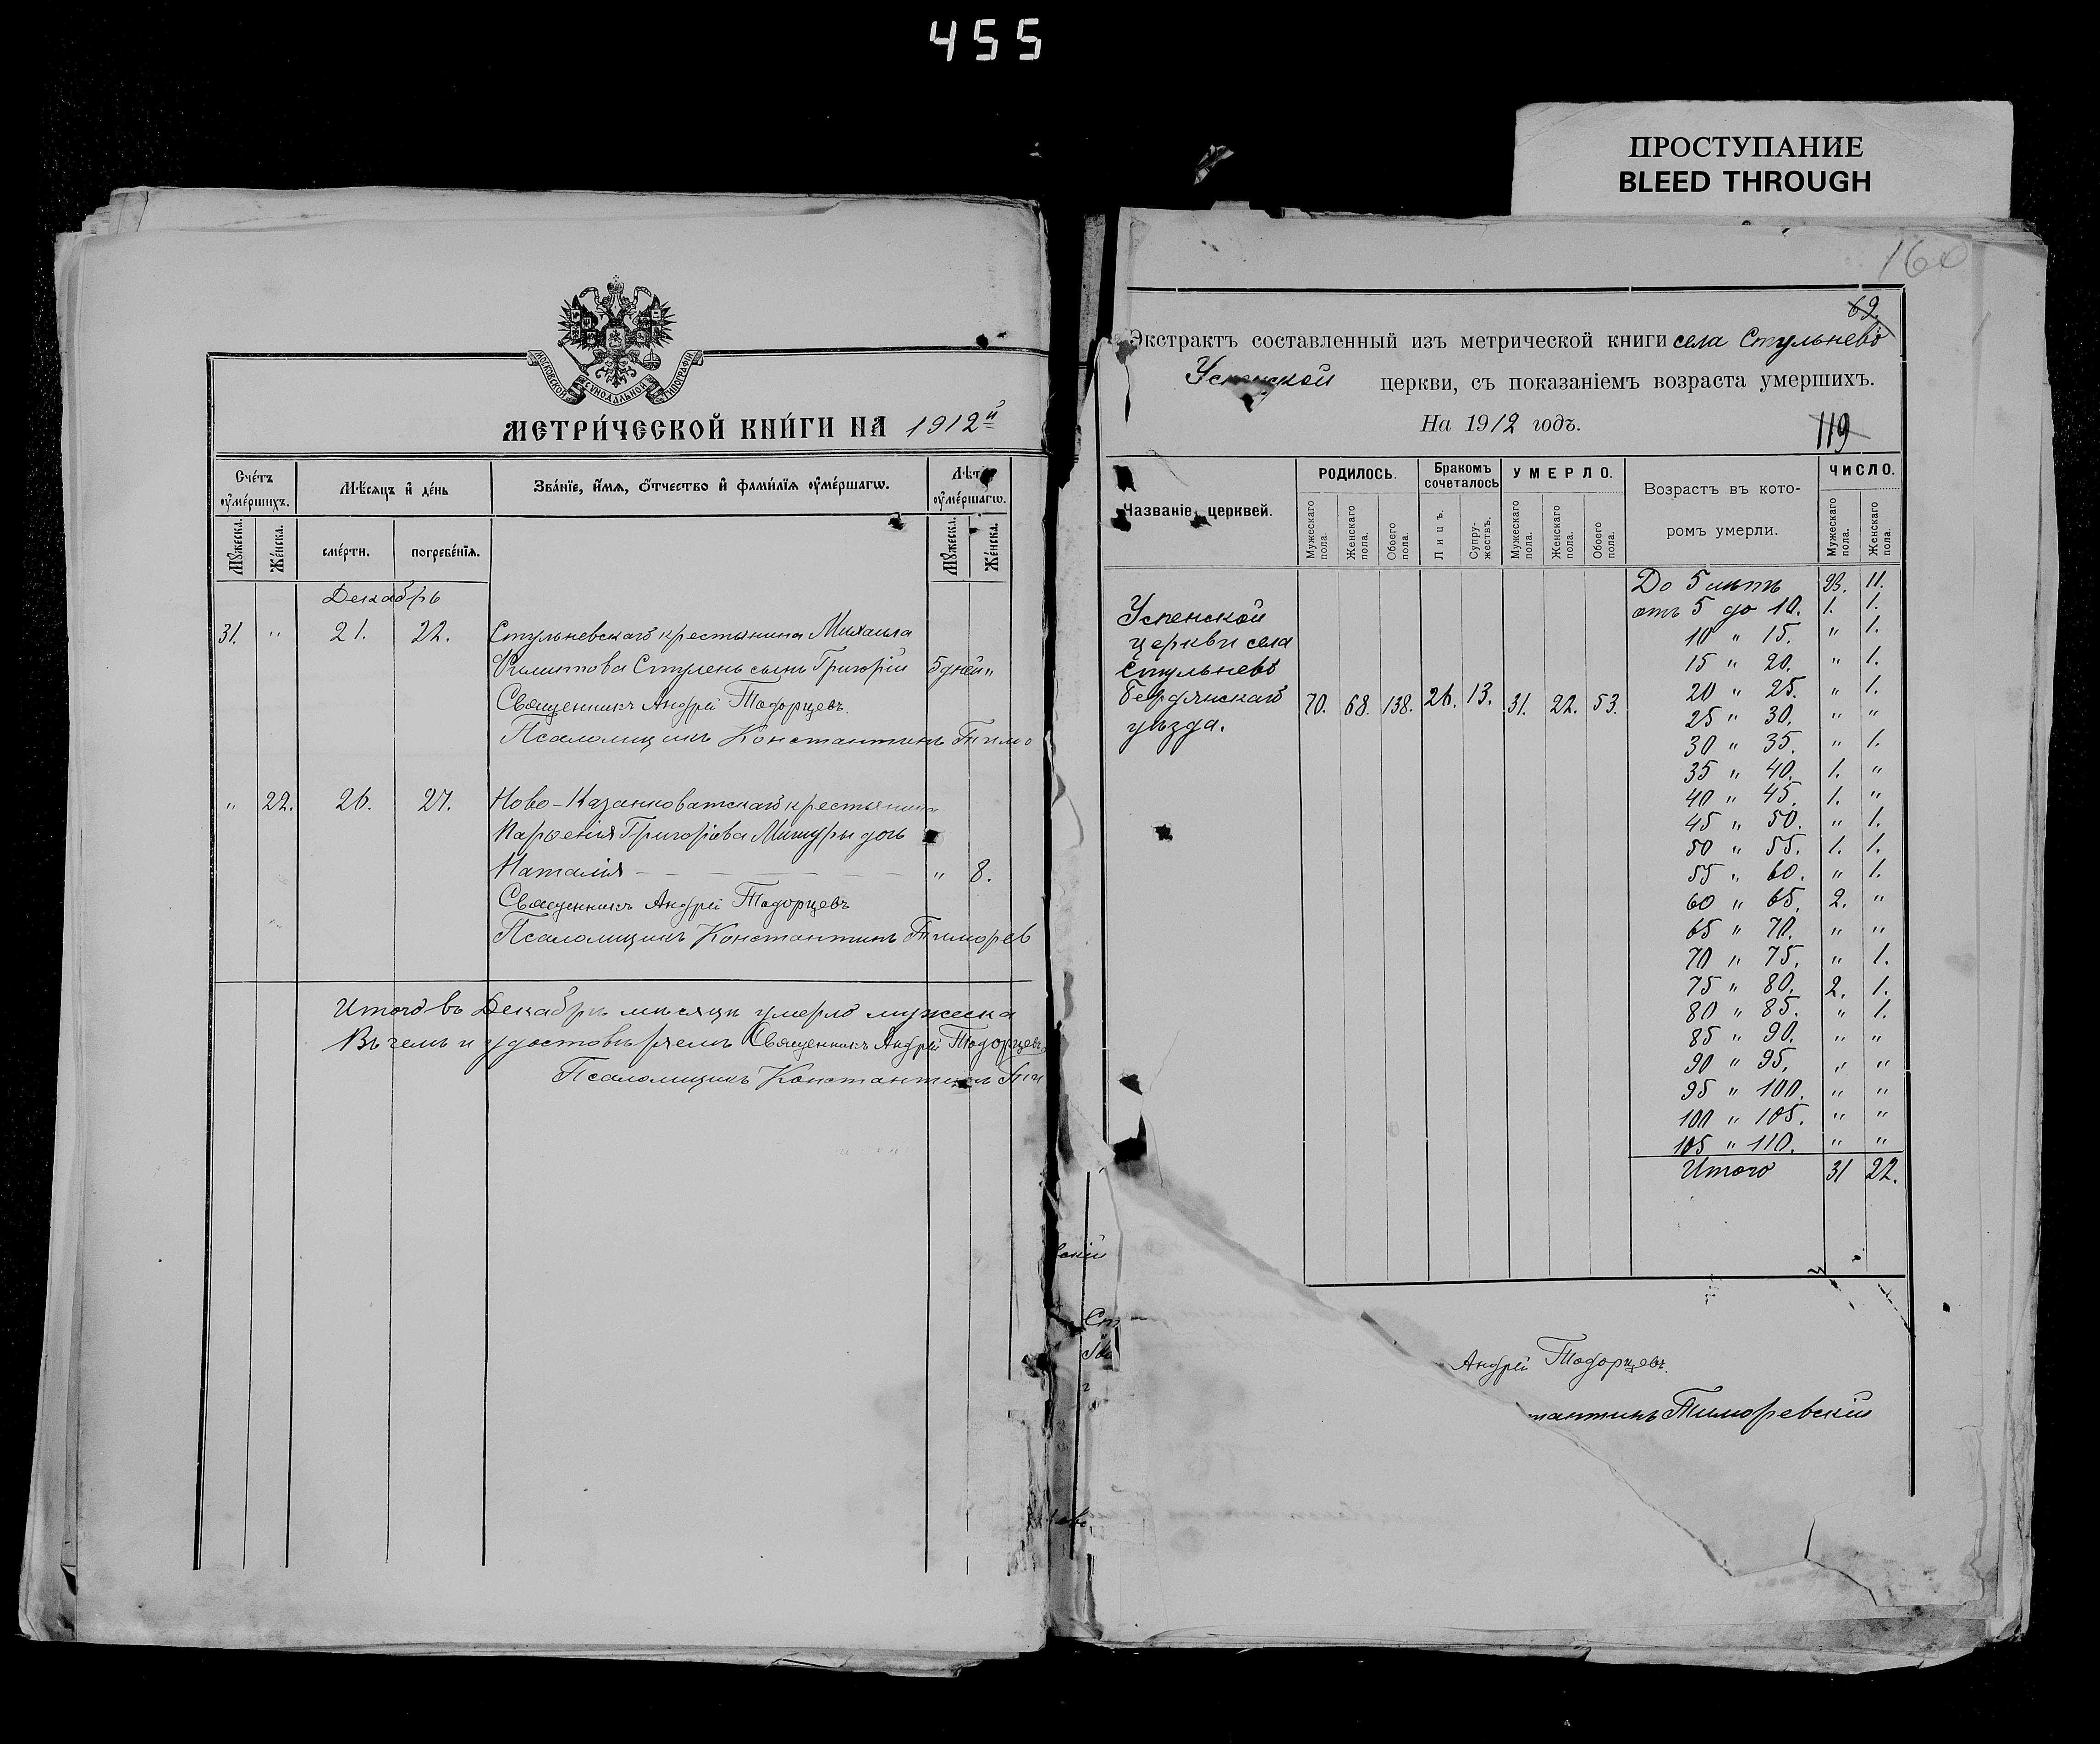 455
ПРОСТУПАНИЕ
BLEED THROUGH
МОСКОВСКОЙ СѴНОДАЛЬНОЙ ТИПОГРАФІИ
МЕТРИ́ЧЕСКОЙ КНИ́ГИ НА 1912й
Сче́тъ ᲂу҆ме́ршихъ.
Мѣ́сяцъ и҆ де́нь
Зва́нїе, и҆́мѧ, ѻ҆́тчество и҆ фамн́лїѧ ᲂу҆ме́ршагѡ.
Лѣ́та ᲂу҆ме́ршагѡ.
Мꙋ́жеска.
Же́нска.
сме́рти.
погребе́нїѧ.
Мꙋ́жеска.
Же́нска.
Декабрь
31. " 21. 22. Стульневскаго крестьянина Михаила
Филиппова Стулень сынъ Григорій 5 дней "
Священникъ Андрей Тодорцевъ.
Псаломщикъ Константинъ Тимо
" 22. 26. 27. Ново-Казанковатскаго крестьянина
Парѳенія Григоріева Мишуры дочь
Наталія - - - - - - - " 8.
Священникъ Андрей Тодорцевъ
Псаломщикъ Константинъ Тиморев
Итого въ Декабрѣ мѣсяцѣ умерло мужеска
Въ чемъ и удостовѣряемъ Священникъ Андрей Тодорцевъ
Псаломщикъ Константинъ Ти
160
69.
Экстрактъ составленный изъ метрической книги села Стульнево
Успенской церкви, съ показаніемъ возраста умершихъ.
На 1912 годъ.
119
Названіе церквей.
РОДИЛОСЬ.
Бракомъ сочеталось
УМЕРЛО.
Возрастъ въ кото-
ромъ умерли.
ЧИСЛО.
Мужескаго пола.
Женскаго пола.
Обоего пола.
Лицъ.
Супру-жествъ.
Мужескаго пола.
Женскаго пола.
Обоего пола.
Мужескаго пола.
Женскаго пола.
Успенской
церкви села
Стульнево
Бердянскаго
уѣзда.
70. 68. 138. 26. 13. 31. 22. 53.
До 5 лѣтъ 23. 11.
отъ 5 до 10. 1. 1.
10 " 15. " 1.
15 " 20. " 1.
20 " 25. " 1.
25 " 30. " "
30 " 35. " 1.
35 " 40. 1. "
40 " 45. 1. "
45 " 50. " 1.
50 " 55. 1. 1.
55 " 60. " 1.
60 " 65. 2. "
65 " 70. " "
70 " 75. " 1.
75 " 80. 2. 1.
80 " 85. " 1.
85 " 90. " "
90 " 95. " "
95 " 100. " "
100 " 105. " "
105 " 110. " "
Итого 31 22.
Андрей Тодорцевъ.
тантинъ Тиморевскій